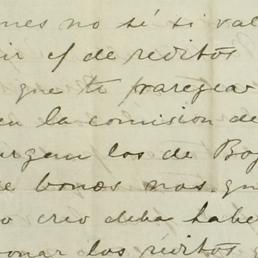 nes no sé si val
ir el de réditos
que te parezca
en la comision de
urgen los de Bo
e bonos nos qu
o creo deba habe
onar los réditos